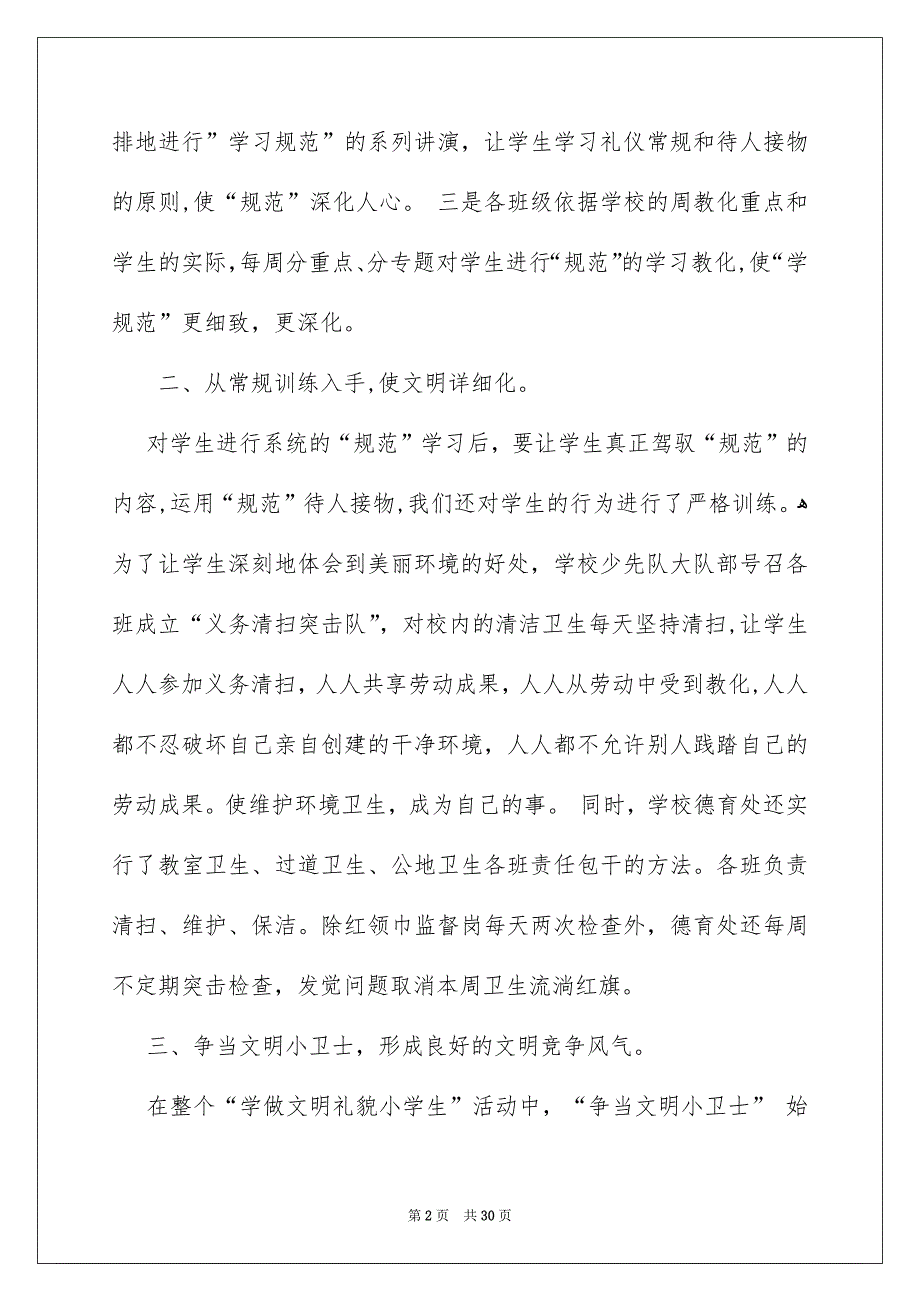 排地进行”学习规范”的系列讲演，让学生学习礼仪常规和待人接物
的原则,使“规范”深化人心。 三是各班级依据学校的周教化重点和
学生的实际，每周分重点、分专题对学生进行“规范”的学习教化,使“学
规范”更细致，更深化。
二、从常规训练入手,使文明详细化。
对学生进行系统的“规范”学习后，要让学生真正驾驭“规范”的
内容,运用“规范”待人接物,我们还对学生的行为进行了严格训练。ﻫ
为了让学生深刻地体会到美丽环境的好处，学校少先队大队部号召各
班成立“义务清扫突击队”，对校内的清洁卫生每天坚持清扫,让学生
人人参加义务清扫，人人共享劳动成果，人人从劳动中受到教化,人人
都不忍破坏自己亲自创建的干净环境，人人都不允许别人践踏自己的
劳动成果。使维护环境卫生，成为自己的事。 同时，学校德育处还实
行了教室卫生、过道卫生、公地卫生各班责任包干的方法。各班负责
清扫、维护、保洁。除红领巾监督岗每天两次检查外，德育处还每周
不定期突击检查，发觉问题取消本周卫生流淌红旗。
三、争当文明小卫士，形成良好的文明竞争风气。
在整个“学做文明礼貌小学生”活动中，“争当文明小卫士” 始
第 2 页 共 30 页